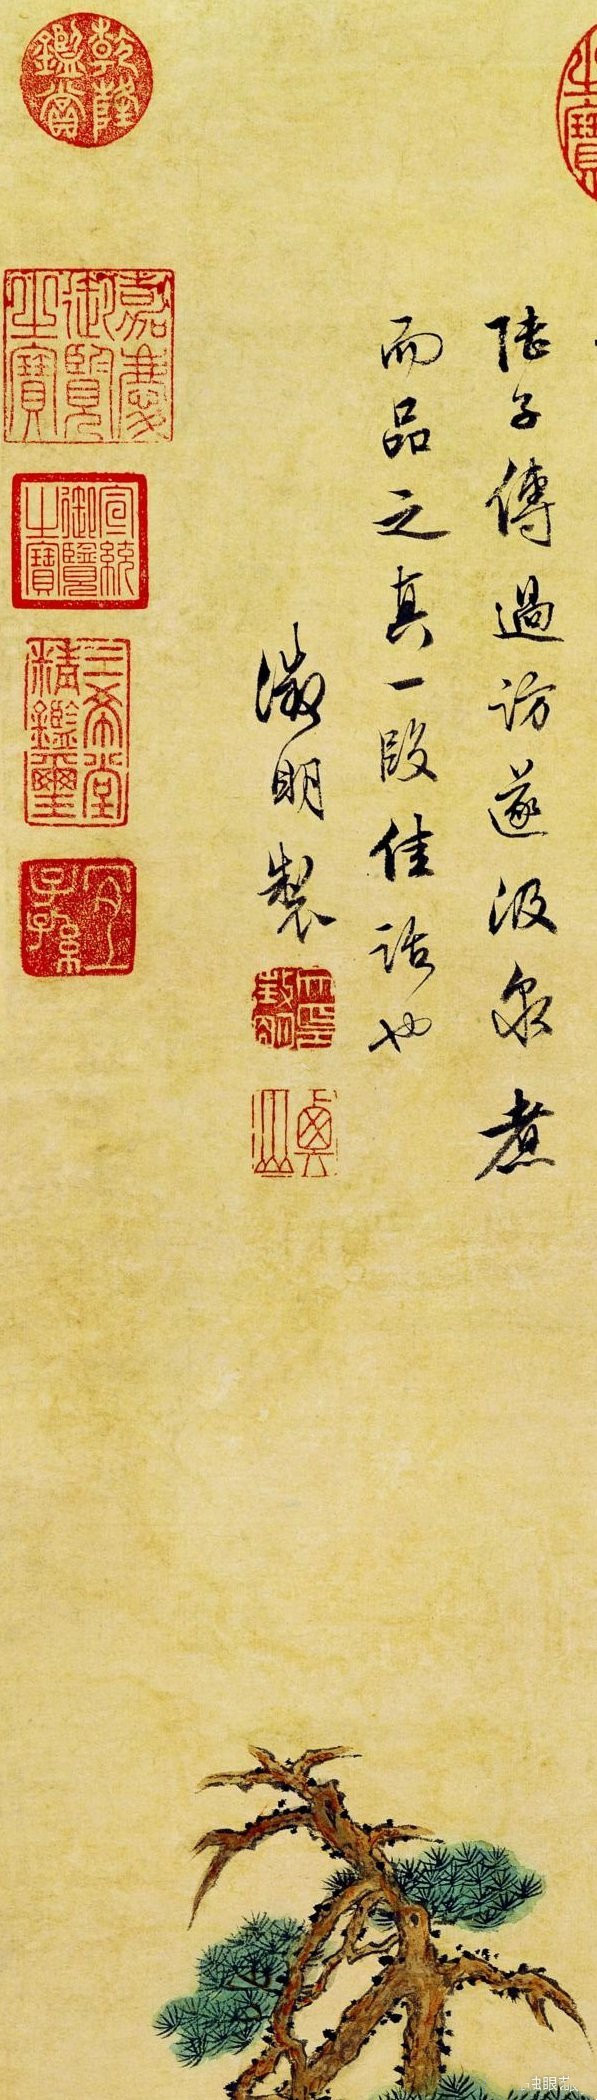 之寶
陸子傅過訪遂汲泉煮
而品之真一段佳話也
徵明製
乾隆鑑賞
嘉慶御覽之寶
宣統御覽之寶
三希堂精鑑璽
宜子孫